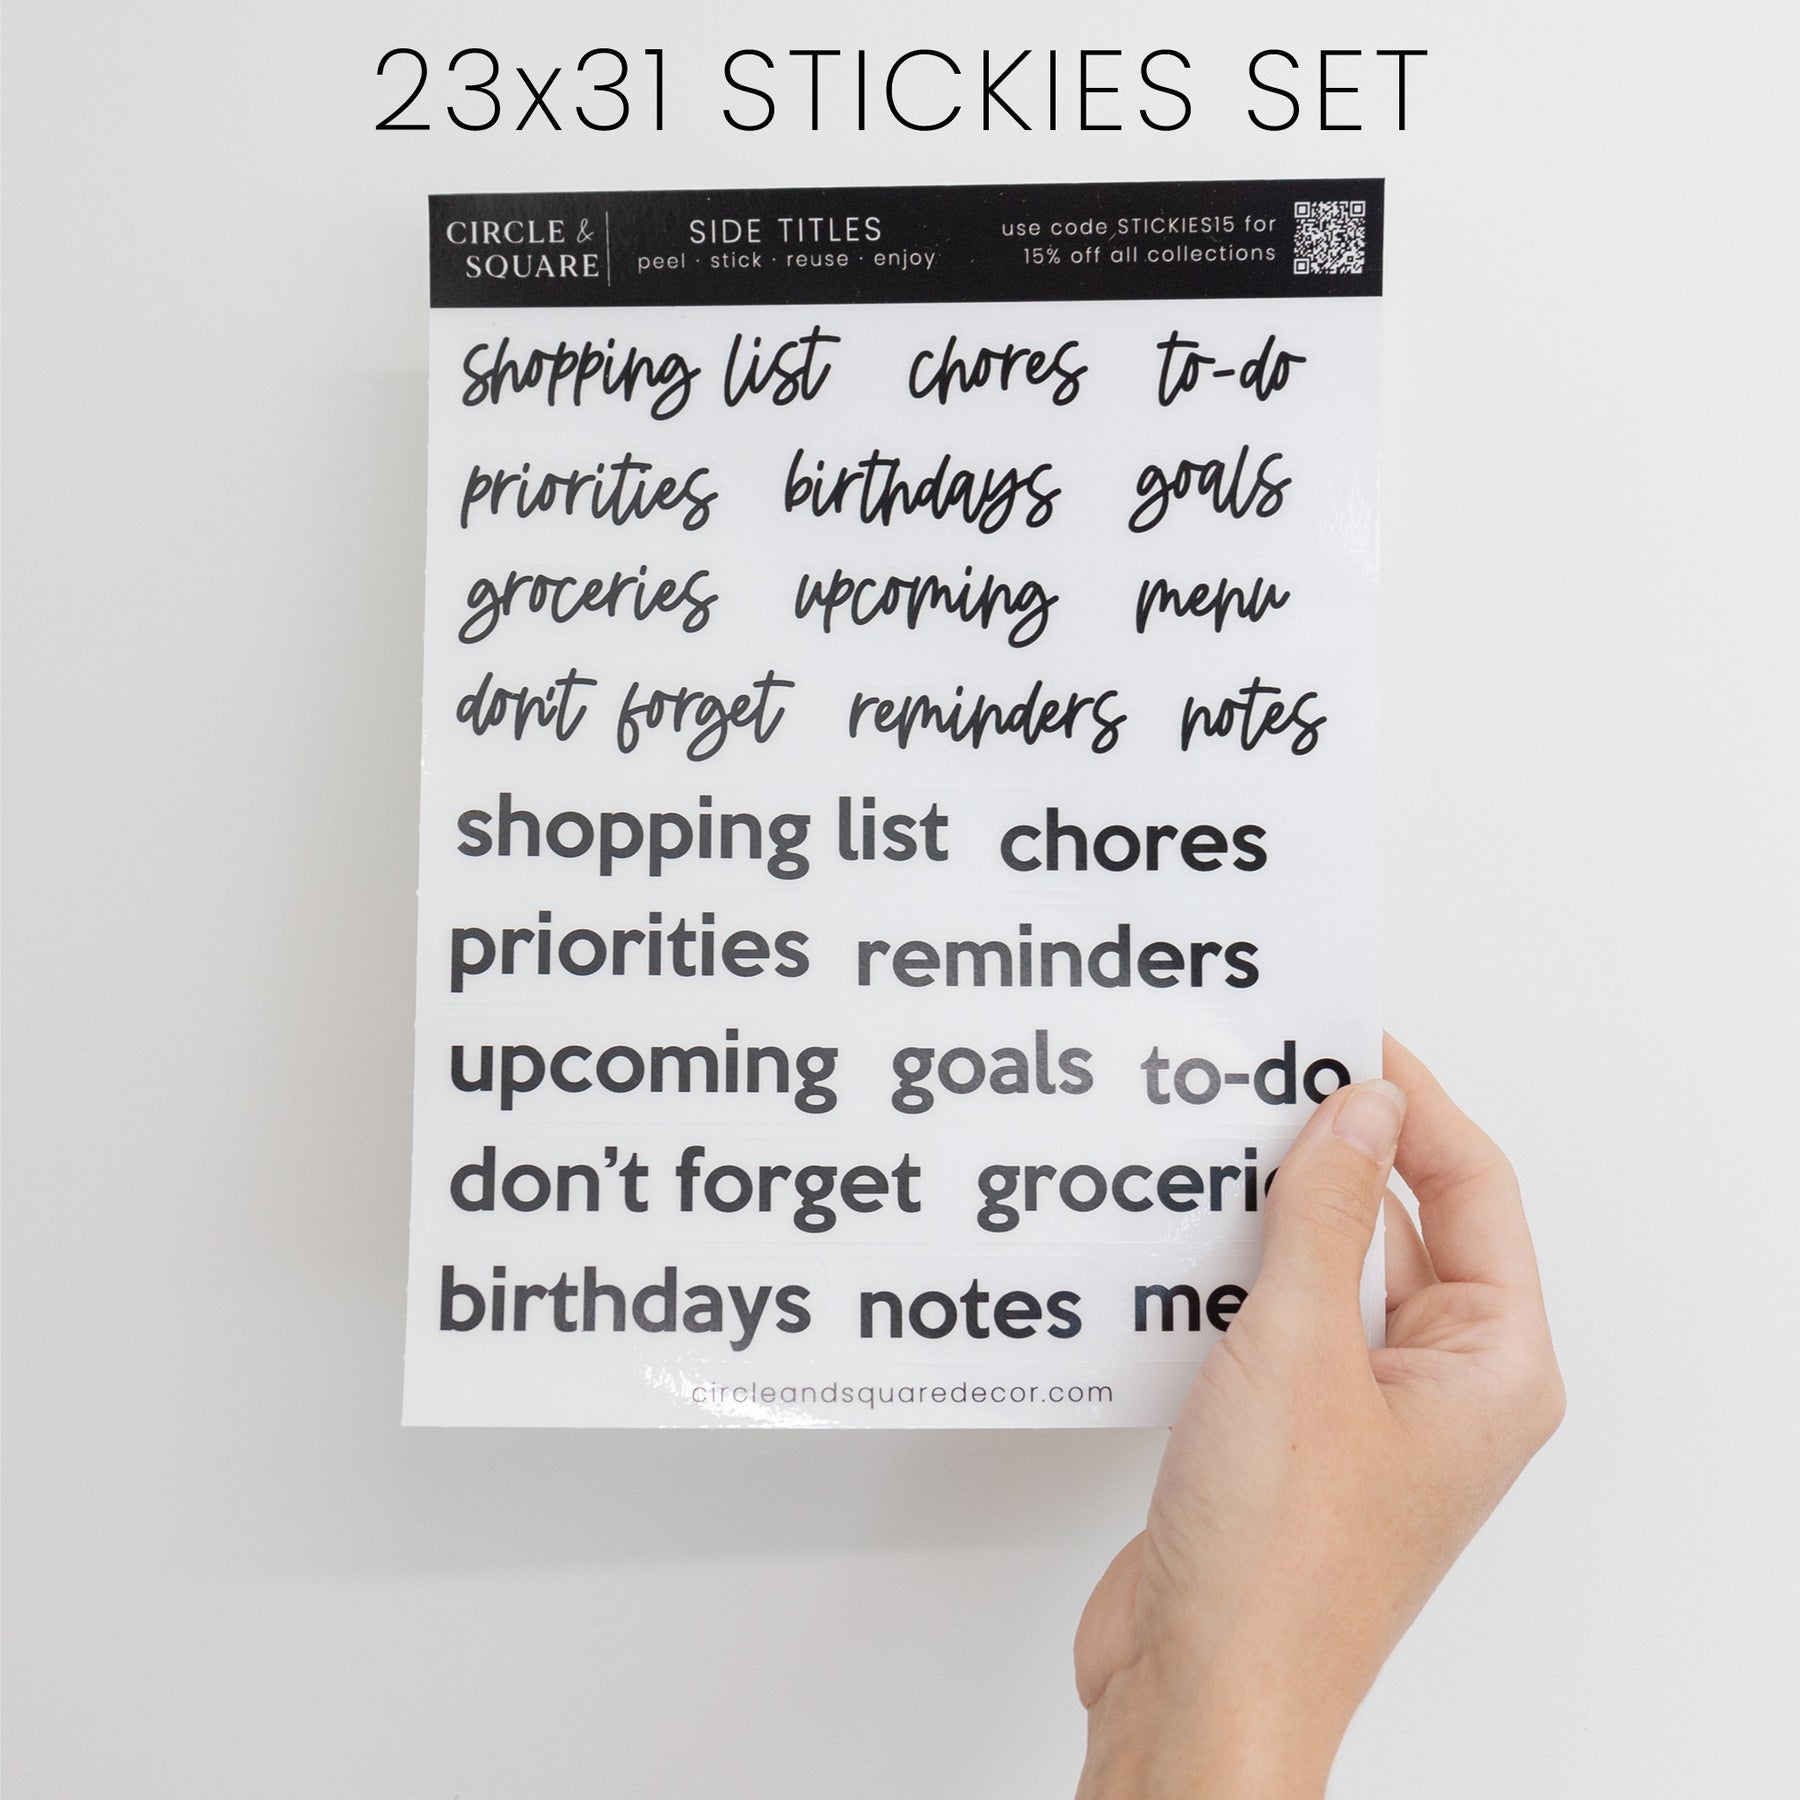 23x31 STICKIES SET
CIRCLE &
SQUARE
SIDE TITLES
peel · stick · reuse · enjoy
use code STICKIES15 for
15% off all collections
shopping list chores to-do
priorities birthdays goals
groceries upcoming menu
don't forget reminders notes
shopping list chores
priorities reminders
upcoming goals to-do
don't forget groceri
birthdays notes me
circleandsquaredecor.com